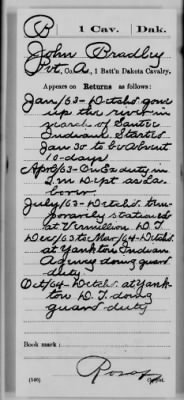 B | 1 Cav. | Dak.
John Bradley
Pvt., Co. A, 1 Batt'n Dakota Cavalry.
Appears on Returns as follows:
Jan/63 - Detchd. gone
up the river in
search of Santee
Indians. Started
Jan 30 to be absent
10-days
Apr/63 - On Ex duty in
Q.M. Dept as La-
borer.
July/63 - Detchd. tem-
porarily stationed
at Vermillion D.T.
Dec/63 to Mar/64 - Detchd.
at Yankton Indian
Agency doing guard
duty
Oct/64 - Detchd. at Yank-
ton D.T. doing
guard duty
Book mark:
(546)
Copyist.